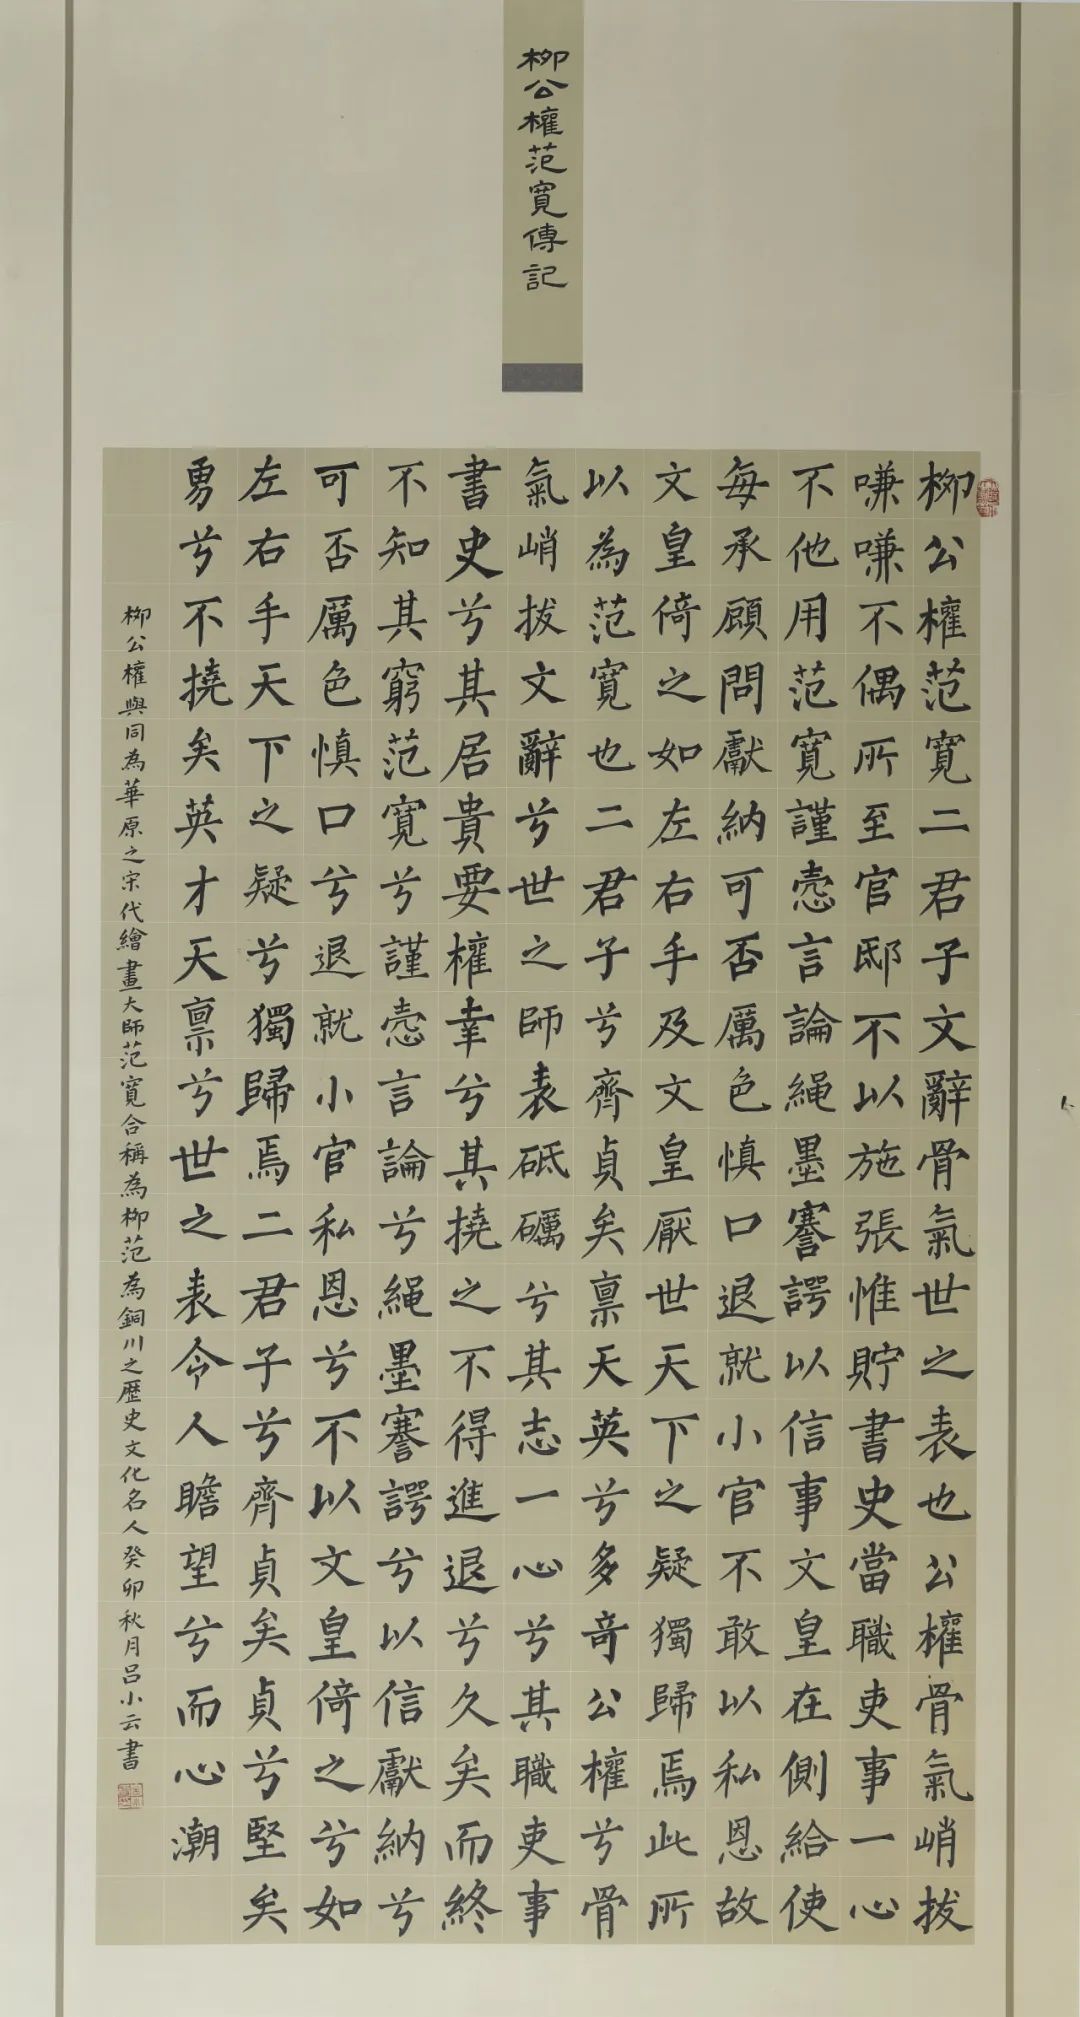 柳公權范寬傳記
柳公權范寬二君子文辭骨氣世之表也公權骨氣峭拔
嗛嗛不偶所至官邸不以施張惟貯書史當職吏事一心
不他用范寬謹愨言論繩墨謇諤以信事文皇在側給使
每承顧問獻納可否厲色慎口退就小官不敢以私恩故
文皇倚之如左右手及文皇厭世天下之疑獨歸焉此所
以為范寬也二君子兮齊貞矣禀天英兮多奇公權兮骨
氣峭拔文辭兮世之師表砥礪兮其志一心兮其職吏事
書史兮其居貴要權幸兮其撓之不得進退兮久矣而終
不知其窮范寬兮謹愨言論兮繩墨謇諤兮以信獻納兮
可否厲色慎口兮退就小官私恩兮不以文皇倚之兮如
左右手天下之疑兮獨歸焉二君子兮齊貞矣貞兮堅矣
勇兮不撓矣英才天禀兮世之表令人瞻望兮而心潮
柳公權與同為華原之宋代繪畫大師范寬合稱為柳范為銅川之歷史文化名人癸卯秋月呂小云書